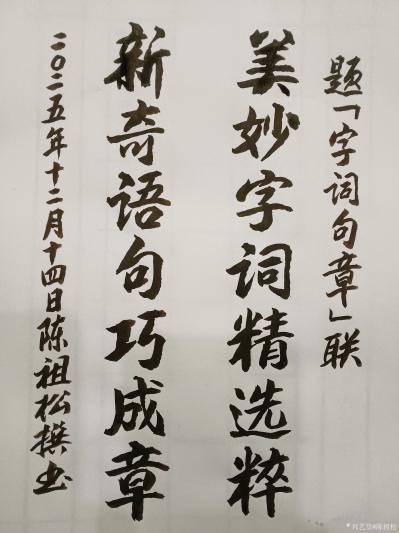 题「字词句章」联
美妙字词精选粹
新奇语句巧成章
二〇二五年十二月十四日陈祖松撰书